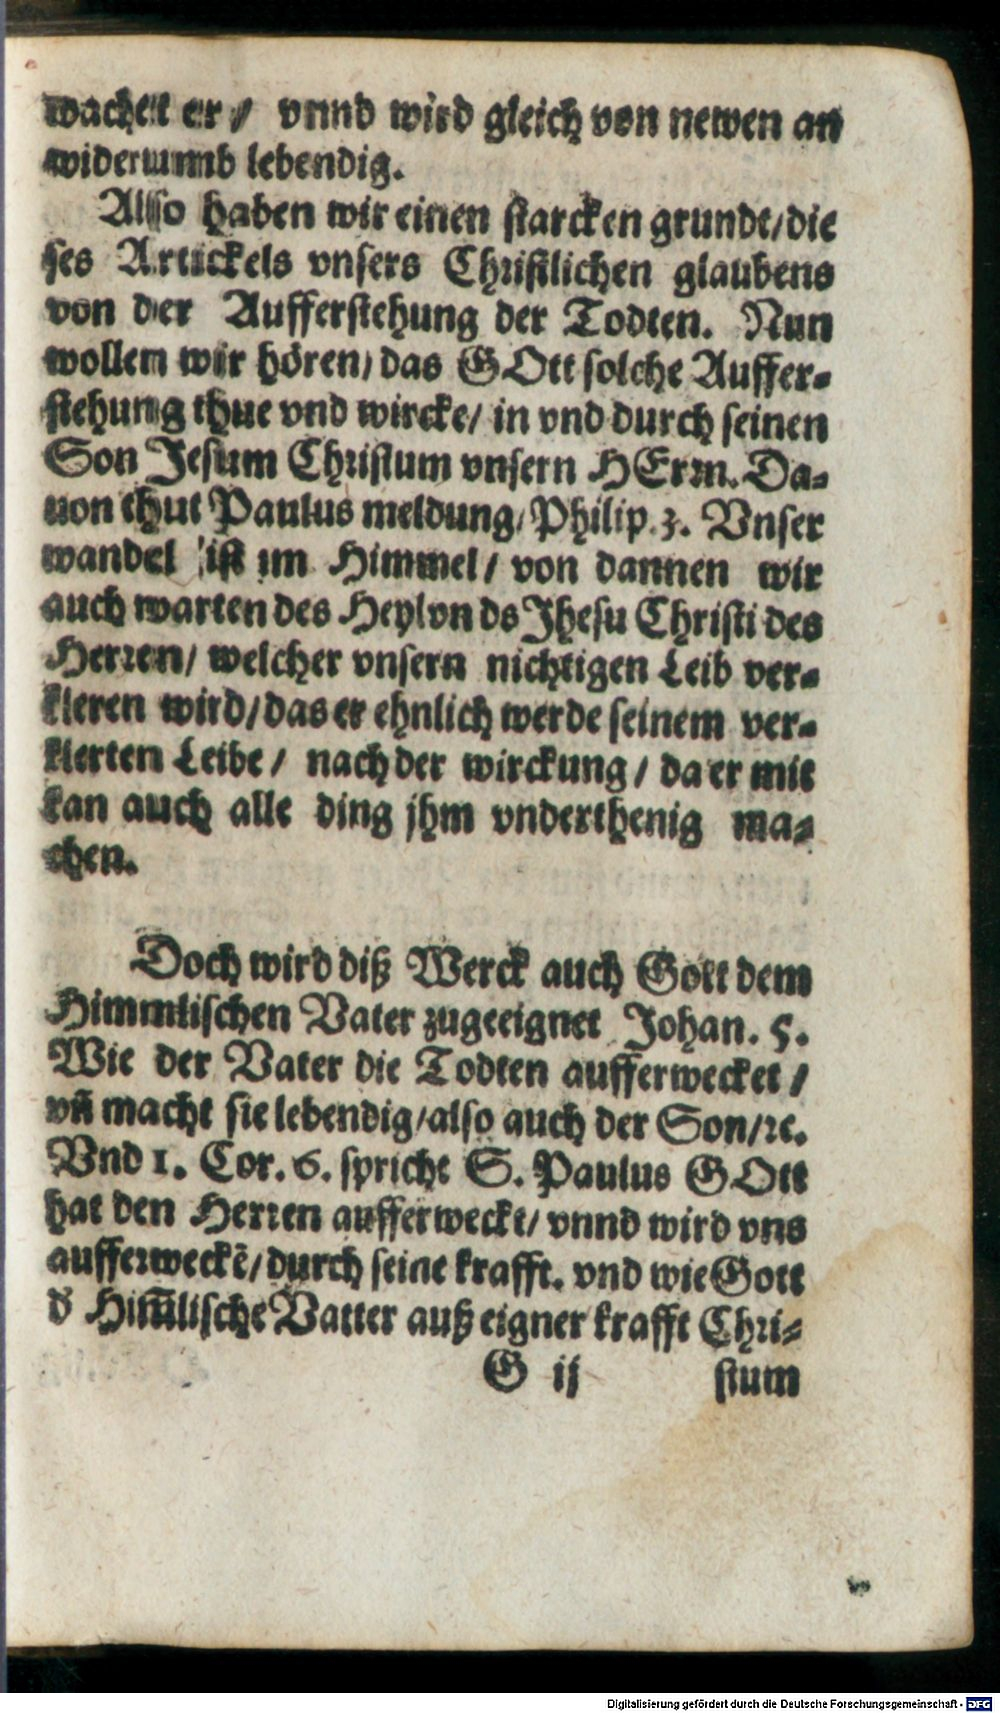 wachet er / vnnd wird gleich von newen an
widerumb lebendig.
Also haben wir einen starcken grundt/die
ses Artickels vnsers Christlichen glaubens
von der Aufferstehung der Todten. Nun
wollen wir hören/ das GOtt solche Auffer-
stehung thue vnd wircke/ in vnd durch seinen
Son Jesum Christum vnsern HErrn. Da-
uon thut Paulus meldung/ Philip. 3. Vnser
wandel ist im Himmel/ von dannen wir
auch warten des Heylvnds Jhesu Christi des
Herren/ welcher vnsern nichtigen Leib ver-
kleren wird/das er ehnlich werde seinem ver-
klerten Leibe/ nach der wirckung/ da er mit
kan auch alle ding jhm vnderthenig ma-
chen.
Doch wird diß Werck auch Gott dem
Himmlischen Vater zugeeignet Johan. 5.
Wie der Vater die Todten aufferwecket /
vñ macht sie lebendig/also auch der Son/ꝛc.
Vnd 1. Cor. 6. spricht S. Paulus GOtt
hat den Herren aufferweckt/ vnnd wird vns
aufferweckẽ/durch seine krafft. vnd wie Gott
d' Him̃lische Vatter auß eigner krafft Chri-
G ij stum
Digitalisierung gefördert durch die Deutsche Forschungsgemeinschaft - DFG